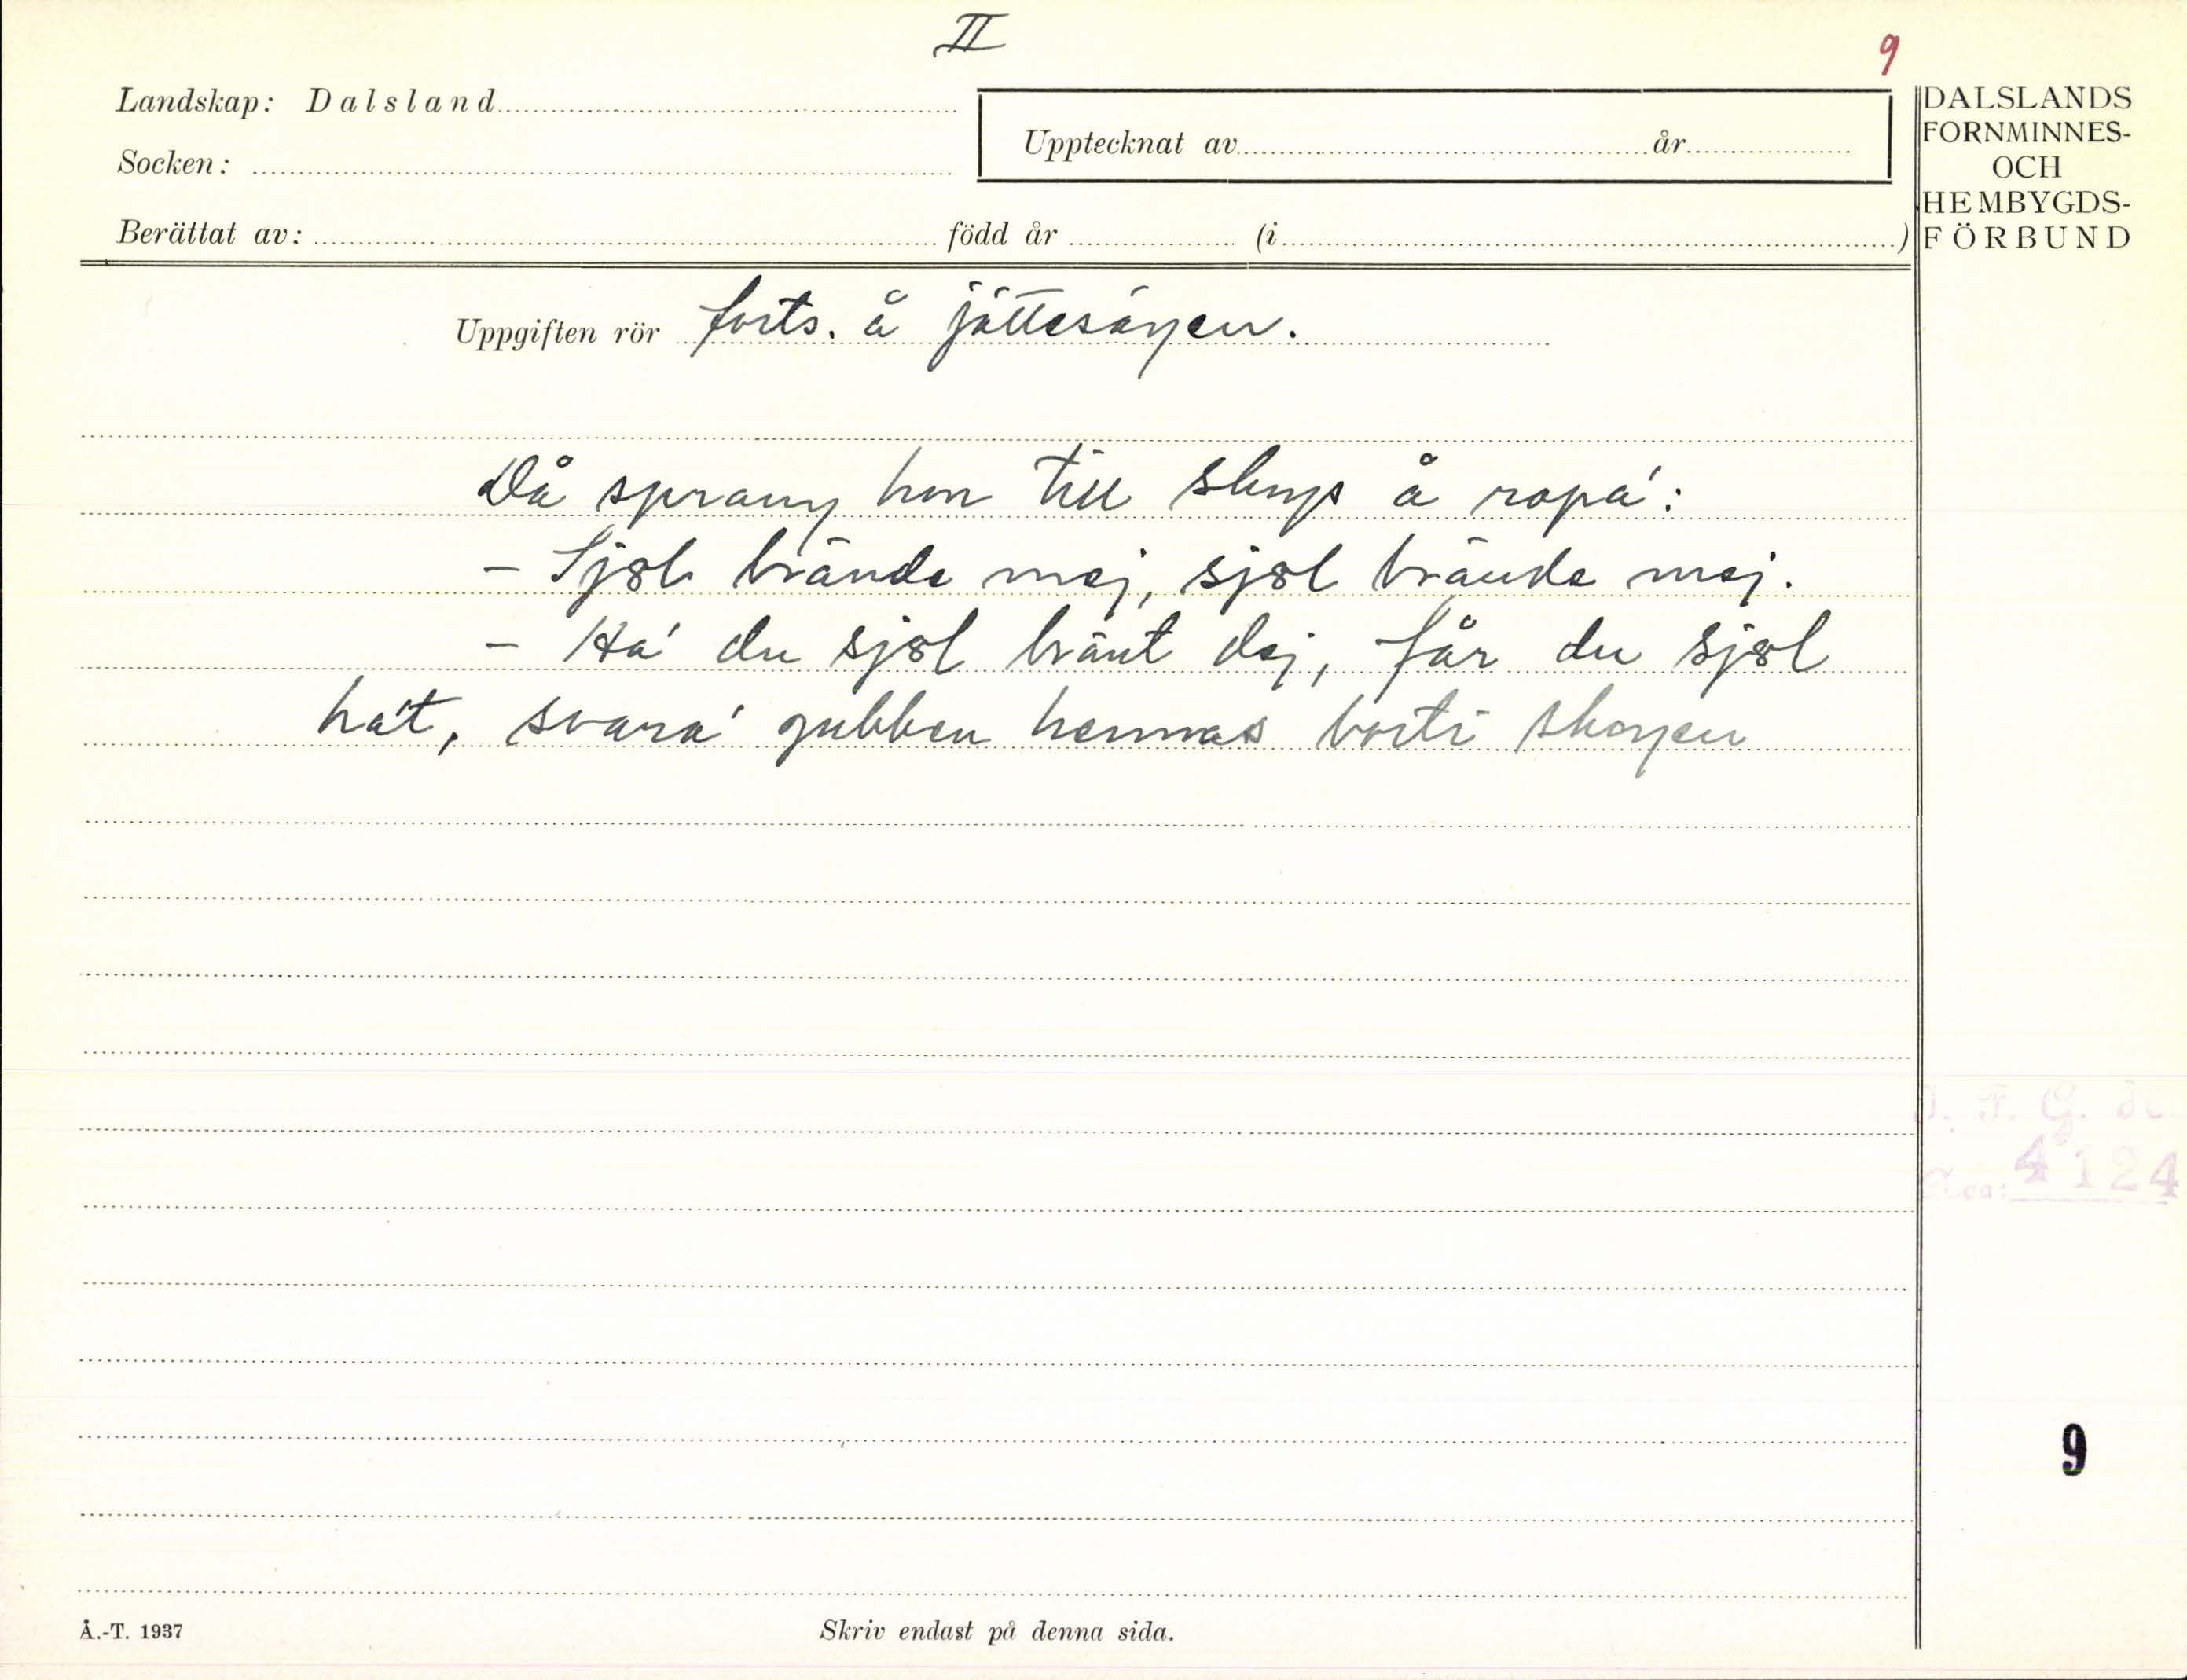 II
9
Landskap: Dalsland
Socken:
Upptecknat av år
Berättat av: född år (i )
DALSLANDS
FORNMINNES-
OCH
HEMBYGDS-
FÖRBUND
Uppgiften rör forts. å jättesägen.
Då sprang hon till skogs å ropa':
- Sjøl brände mej, sjøl brände mej.
- Ha' du sjøl bränt dej, får du sjøl
ha't, svara' gubben hennas borti skogen
4124
9
Å.-T. 1937
Skriv endast på denna sida.